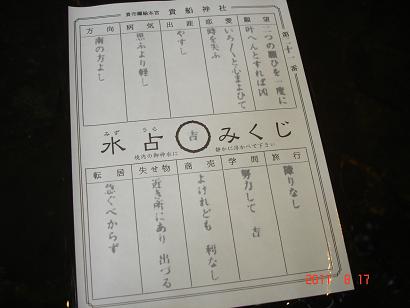 貴布禰総本宮 貴船神社
第二十一番
願望
二つの願ひを一度に
叶へんとすれば凶
恋愛
いろいろと心まよひて
時を失ふ
出産
やすし
病気
思ふより軽し
方向
南の方よし
水占みくじ
みず
うら
吉
境内の御神水に
静かに浮かべて下さい
旅行
障りなし
学問
努力して 吉
商売
よけれども 利なし
失せ物
近き所にあり 出づる
転居
急ぐべからず
2011 8 17